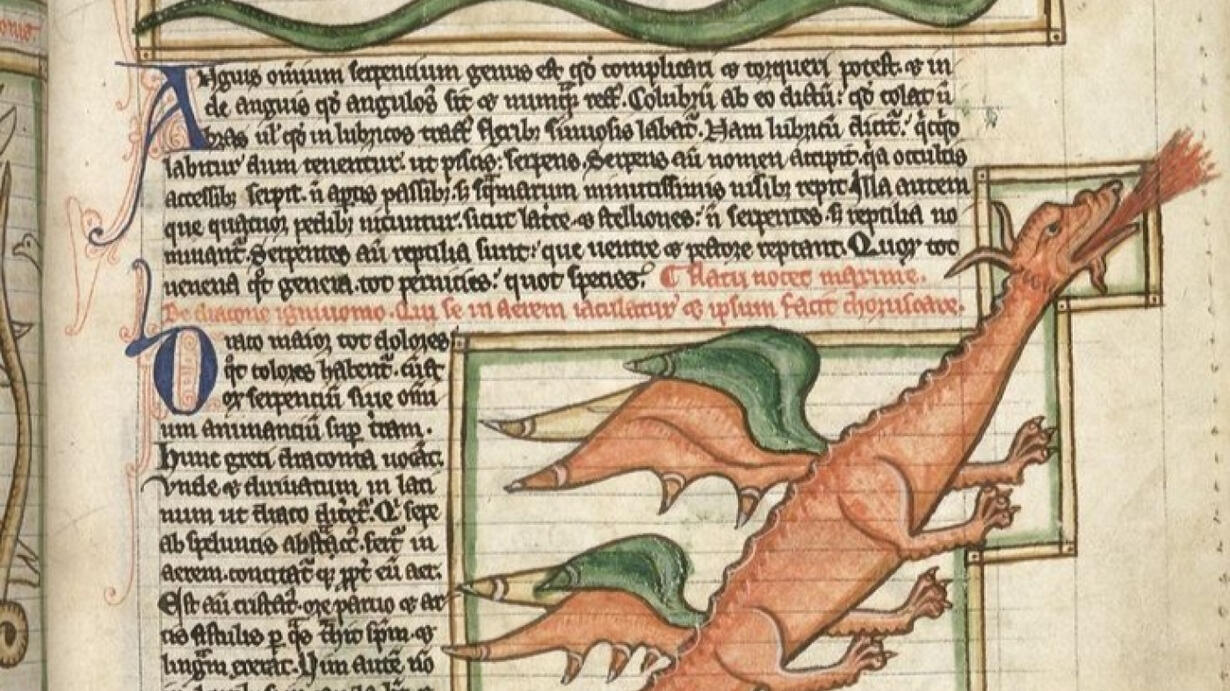 Anguis omium serpencium genus est qd complicari & torqueri potest. & in
de anguis qd angulosus sit & numqm rectus. Colubrum ab eo dictum: qd colat um
bras ul qd in lubricos tractus flexibus sinuosis labatur. Nam lubricum dicitur: quicquid
labitur dum tenentur. ut piscis: serpens. Serpens aũ nomen accipit. qa occultis
accessib; serpit. ñ aptis passib; s; squamarum minutissimis nisib; repit. Illa autem
que quatuor pedib; nituntur. sicut lacerte & stelliones: ñ serpentes. s; reptilia no
minantur. Serpentes aũ reptilia sunt: que uentre & pectore reptant. Quor tot
uenena qt genera. tot pernicies: quot species. Flatu nocet maxime.
De dracone ignivomo. Qui se in aerem iaculatur & ipsum facit choruscare.
Draco maior tot dolores
qt colores habent. est
or serpentiũ siue omi
um animanciũ sup terram.
Hunc greci draconta uocãt.
Vnde & diriuatum in lati
num ut draco diceret. Q sepe
ab speluncis abstractus. fertur in
aerem. concitat q; ppt eũ aer.
Est aũ cristatus. ore paruo & ar
tis fistulis p qs trahit spm. &
linguam exerat. Vim autẽ nõ